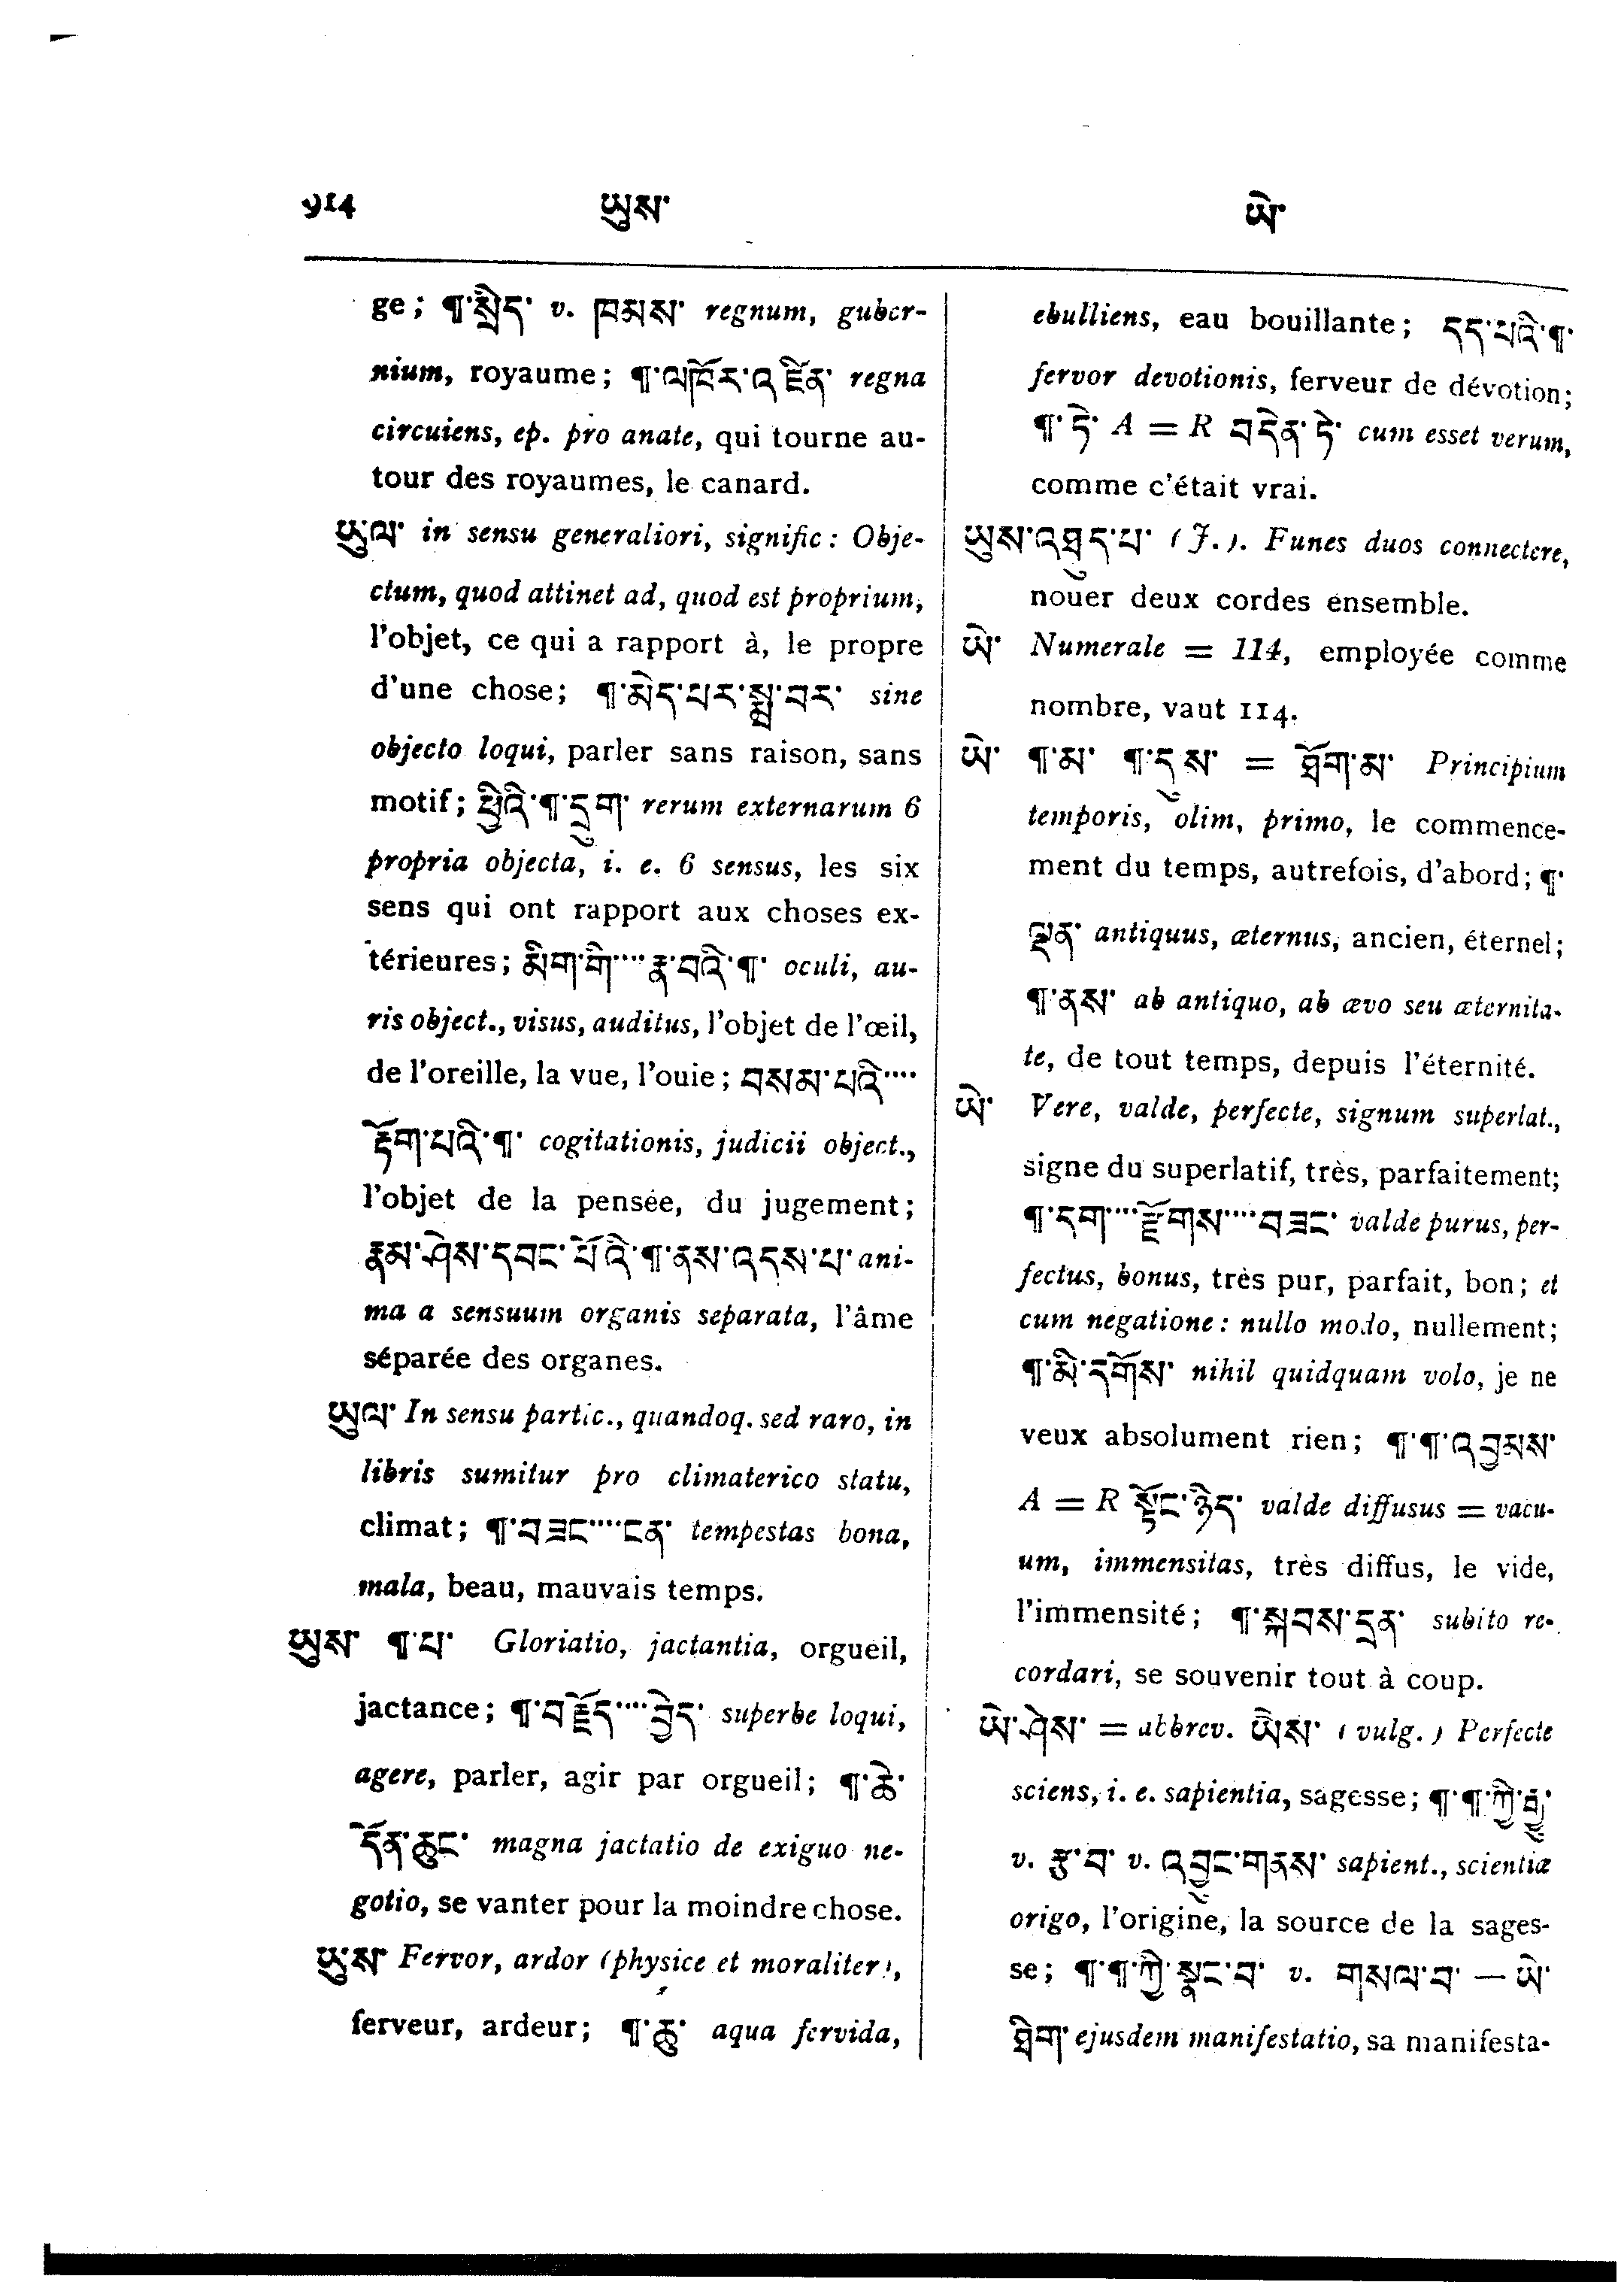 914 ཡུས་ ཡེ་
ge; ¶་སྲིད་ v. ཁམས་ regnum, guber-
nium, royaume; ¶་ལཁོར་འཛིན་ regna
circuiens, ep. pro anate, qui tourne au-
tour des royaumes, le canard.
ཡུལ་ in sensu generaliori, signific: Obje-
ctum, quod attinet ad, quod est proprium,
l'objet, ce qui a rapport à, le propre
d'une chose; ¶་མེད་པར་སྨྲ་བར་ sine
objecto loqui, parler sans raison, sans
motif; ཕྱིའི་¶་དྲུག་ rerum externarum 6
propria objecta, i. e. 6 sensus, les six
sens qui ont rapport aux choses ex-
térieures; མིག་གི་····རྣ་བའི་¶་ oculi, au-
ris object., visus, auditus, l'objet de l'œil,
de l'oreille, la vue, l'ouie; བསམ་པའི་····
རྟོག་པའི་¶་ cogitationis, judicii object.,
l'objet de la pensée, du jugement;
རྣམ་ཤེས་དབང་པོའི་¶་ནས་འདས་པ་ ani-
ma a sensuum organis separata, l'âme
séparée des organes.
ཡུལ་ In sensu partic., quandoq. sed raro, in
libris sumitur pro climaterico statu,
climat; ¶་བཟང་····ངན་ tempestas bona,
mala, beau, mauvais temps.
ཡུས་ ¶་པ་ Gloriatio, jactantia, orgueil,
jactance; ¶་བརྗོད་····བྱེད་ superbe loqui,
agere, parler, agir par orgueil; ¶་ཆེ་
དོན་ཆུང་ magna jactatio de exiguo ne-
gotio, se vanter pour la moindre chose.
ཡུས་ Fervor, ardor (physice et moraliter),
ferveur, ardeur; ¶་ཆུ་ aqua fervida,
ebulliens, eau bouillante; དད་པའི་¶་
fervor devotionis, ferveur de dévotion;
¶་ཏེ་ A = R བདེན་ཏེ་ cum esset verum,
comme c'était vrai.
ཡུས་འཐུད་པ་ (J.). Funes duos connectere,
nouer deux cordes ensemble.
ཡེ་ Numerale = 114, employée comme
nombre, vaut 114.
ཡེ་ ¶་མ་ ¶་དུས་ = ཐོག་མ་ Principium
temporis, olim, primo, le commence-
ment du temps, autrefois, d'abord; ¶་
ལྡན་ antiquus, æternus, ancien, éternel;
¶་ནས་ ab antiquo, ab ævo seu æternita-
te, de tout temps, depuis l'éternité.
ཡེ་ Vere, valde, perfecte, signum superlat.,
signe du superlatif, très, parfaitement;
¶་དག་····རྫོགས་····བཟང་ valde purus, per-
fectus, bonus, très pur, parfait, bon; et
cum negatione: nullo modo, nullement;
¶་མི་དགོས་ nihil quidquam volo, je ne
veux absolument rien; ¶་¶་འབྱམས་
A = R སྟོང་ཉིད་ valde diffusus = vacu-
um, immensitas, très diffus, le vide,
l'immensité; ¶་སྐབས་དྲན་ subito re-
cordari, se souvenir tout à coup.
ཡེ་ཤེས་ = abbrev. ཡེས་ (vulg.) Perfecte
sciens, i. e. sapientia, sagesse; ¶་¶་ཀྱི་
v. རྩ་བ་ v. འབྱུང་གནས་ sapient., scientiæ
origo, l'origine, la source de la sages-
se; ¶་¶་ཀྱི་སྣང་བ་ v. གསལ་བ་ — ཡེ་
ཐིག་ ejusdem manifestatio, sa manifesta-